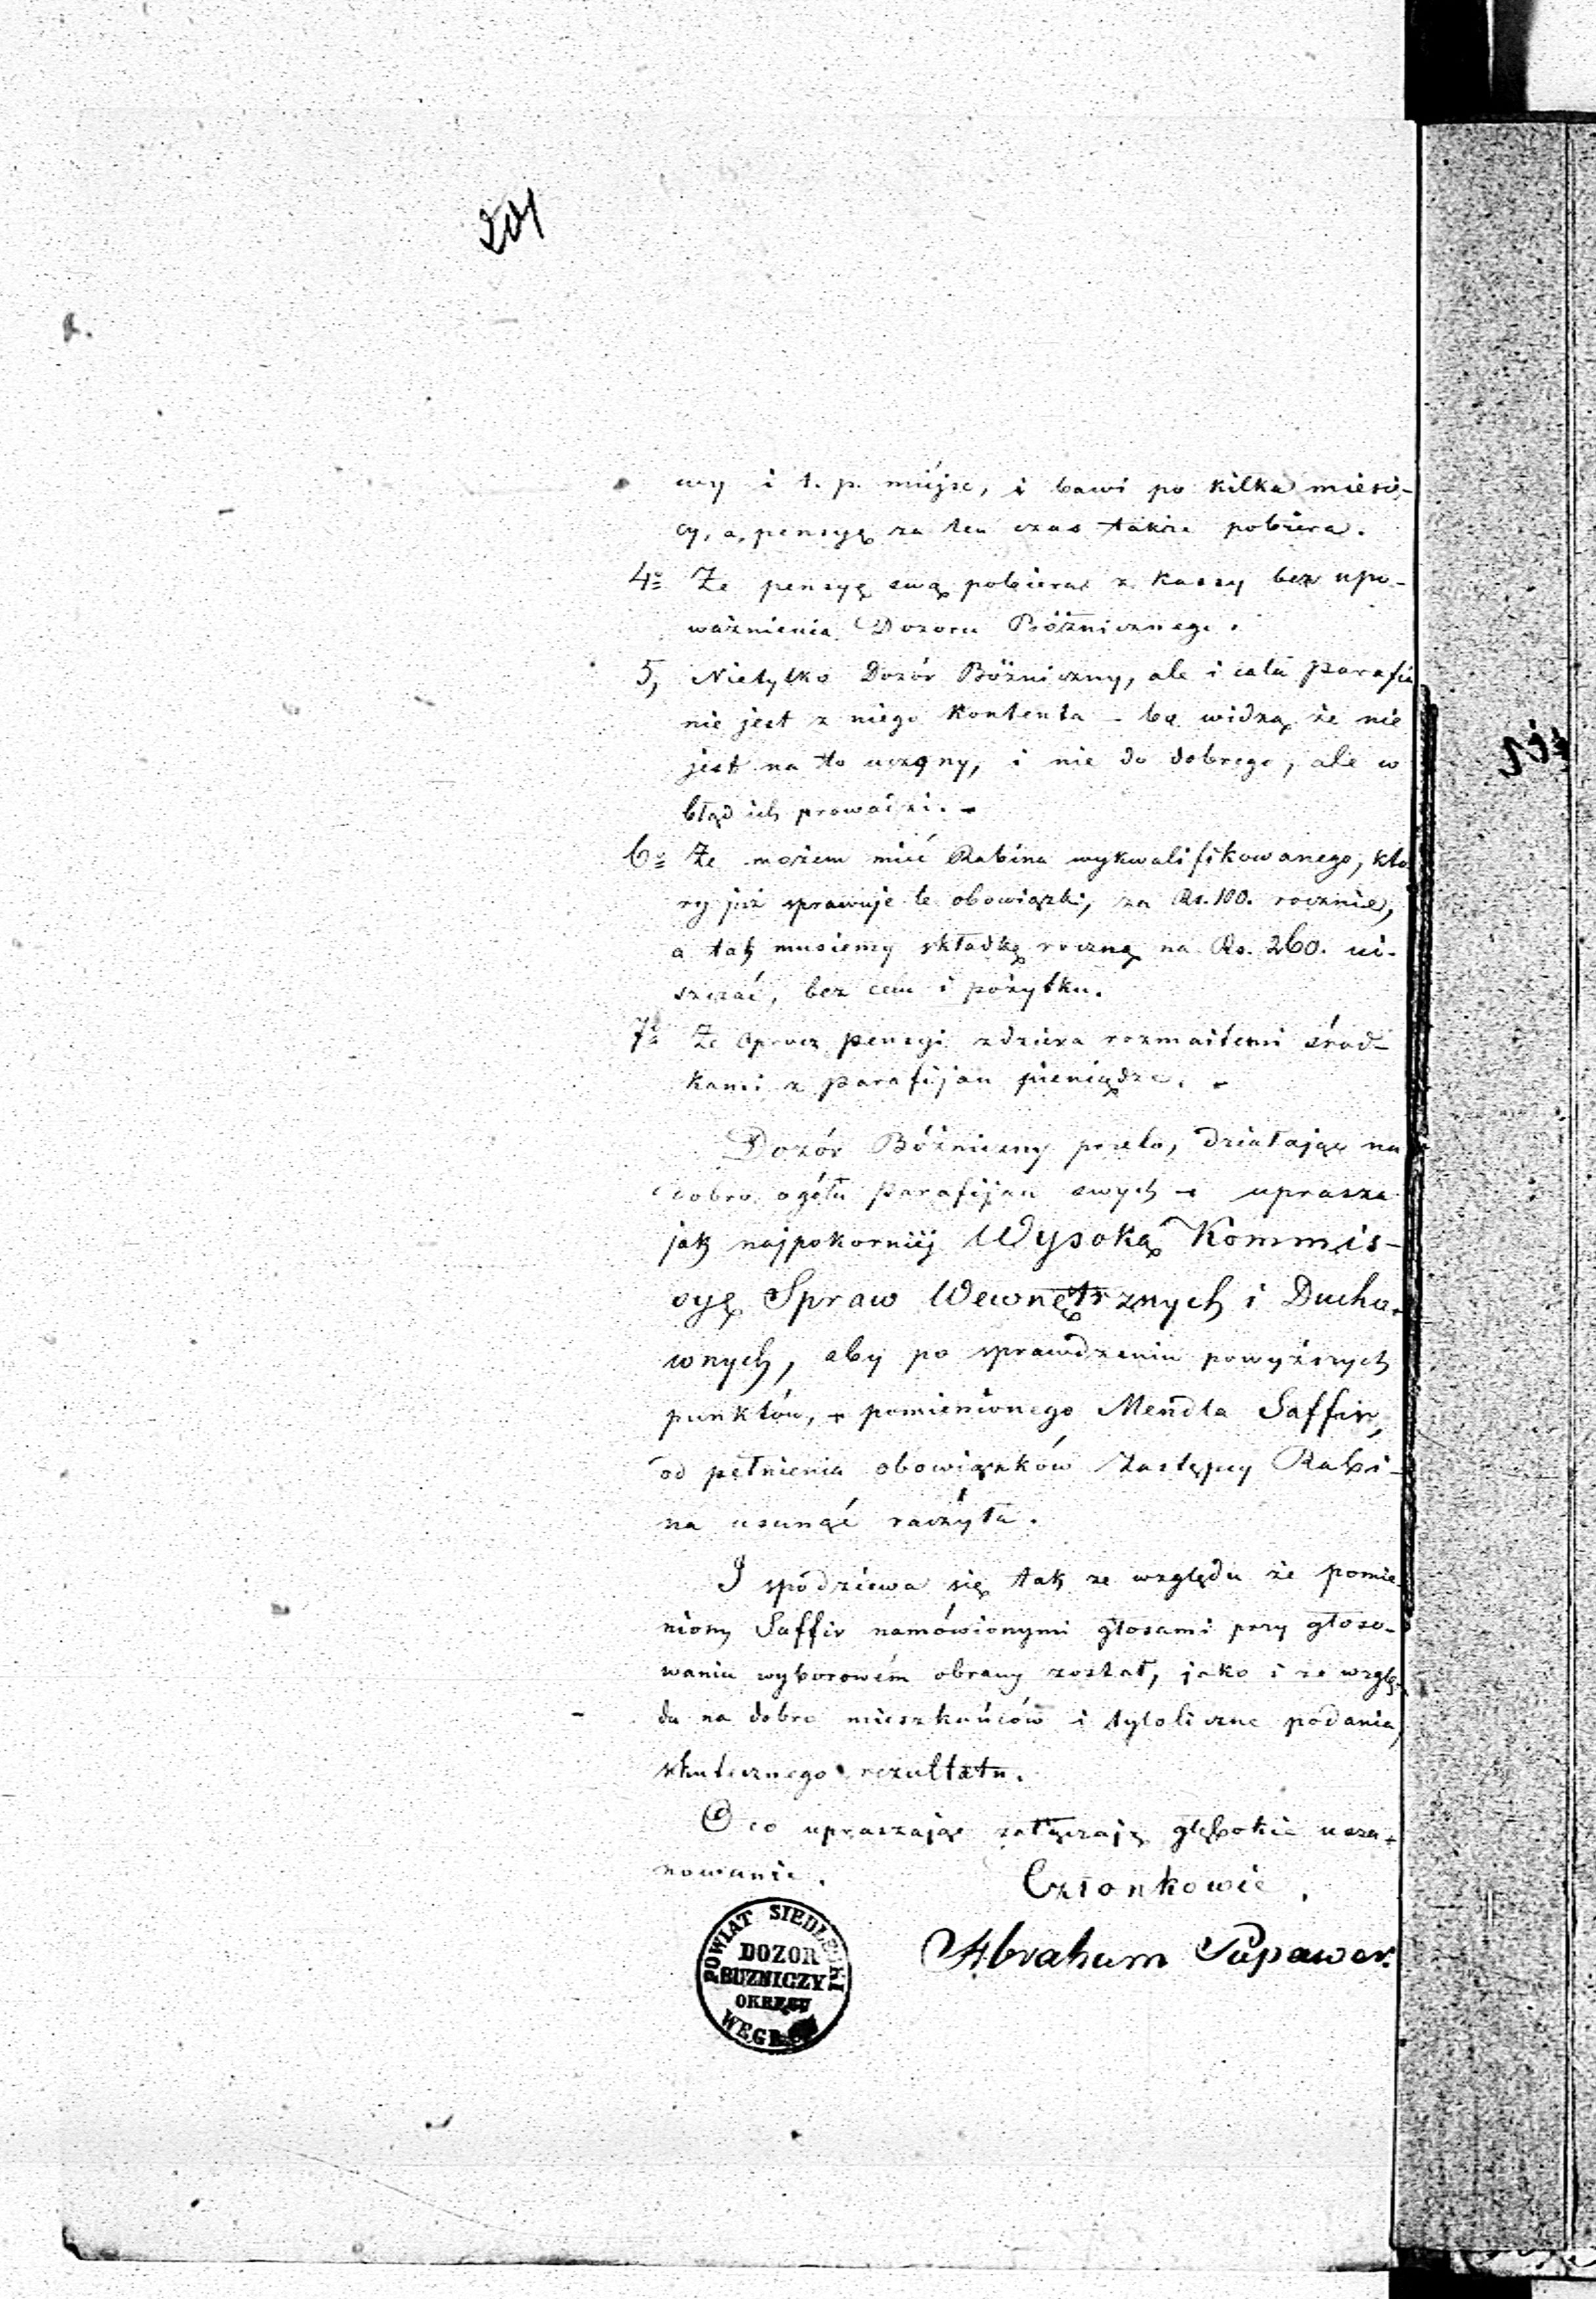 201
wy i t. p. miéjsc, i bawi po kilka miesię-
cy, a, pensyę za ten czas także pobiera.
4o Że pensyę swą pobiera z kassy bez upo-
ważnienia Dozoru Bóżnicznego.
5, Nietylko Dozór Bóżniczny, ale i cała parafia
nie jest z niego kontenta – bo widzą że nie
jest na to uczony, i nie do dobrego, ale w
błąd ich prowadzi. –
6o Że możem mieć Rabina wykwalifikowanego, któ
ry już sprawuje te obowiązki, za Rs. 100. rocznie,
a tak musiemy składkę roczną na Rs. 260. ui-
szczać, bez celu i pożytku.
7o Że oprócz pensyi zdziera rozmaitemi środ-
kami z parafijan pieniądze. –
Dozór Bóżniczny przeto, działając na
dobro ogółu parafijan swych – uprasza
jak najpokorniéj Wysoką Kommis-
syę Spraw Wewnętrznych i Ducho-
wnych, aby po sprawdzeniu powyższych
punktów, pomienionego Mendla Saffir,
od pełnienia obowiązków Zastępcy Rabi-
na usunąć raczyła.
I spodziewa się tak ze względu że pomie-
niony Saffir namówionymi głosami przy głoso-
waniu wyborowém obrany został, jako i ze wzglę-
du na dobro mieszkańców i tyloliczne podania,
skutecznego rezultatu.
O co upraszając załączają głębokie usza-
nowanie.
Członkowie.
Abraham Papawer.
POWIAT SIEDLECKI
DOZOR
BUZNICZY
OKRĘGU